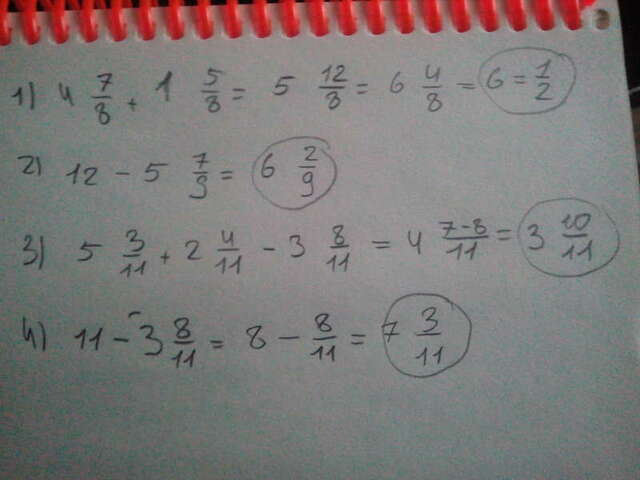 1) 4 7/8 + 1 5/8 = 5 12/8 = 6 4/8 = 6 = 1/2
2) 12 - 5 7/9 = 6 2/9
3) 5 3/11 + 2 4/11 - 3 8/11 = 4 7-8/11 = 3 10/11
4) 11 - 3 8/11 = 8 - 8/11 = 7 3/11